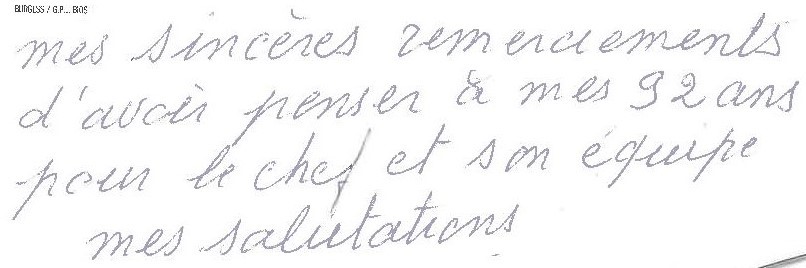 BURGLSS / G.P... BIOS
mes sincères remerciements
d'avoir penser à mes 92 ans
pour le chef et son équipe
mes salutations